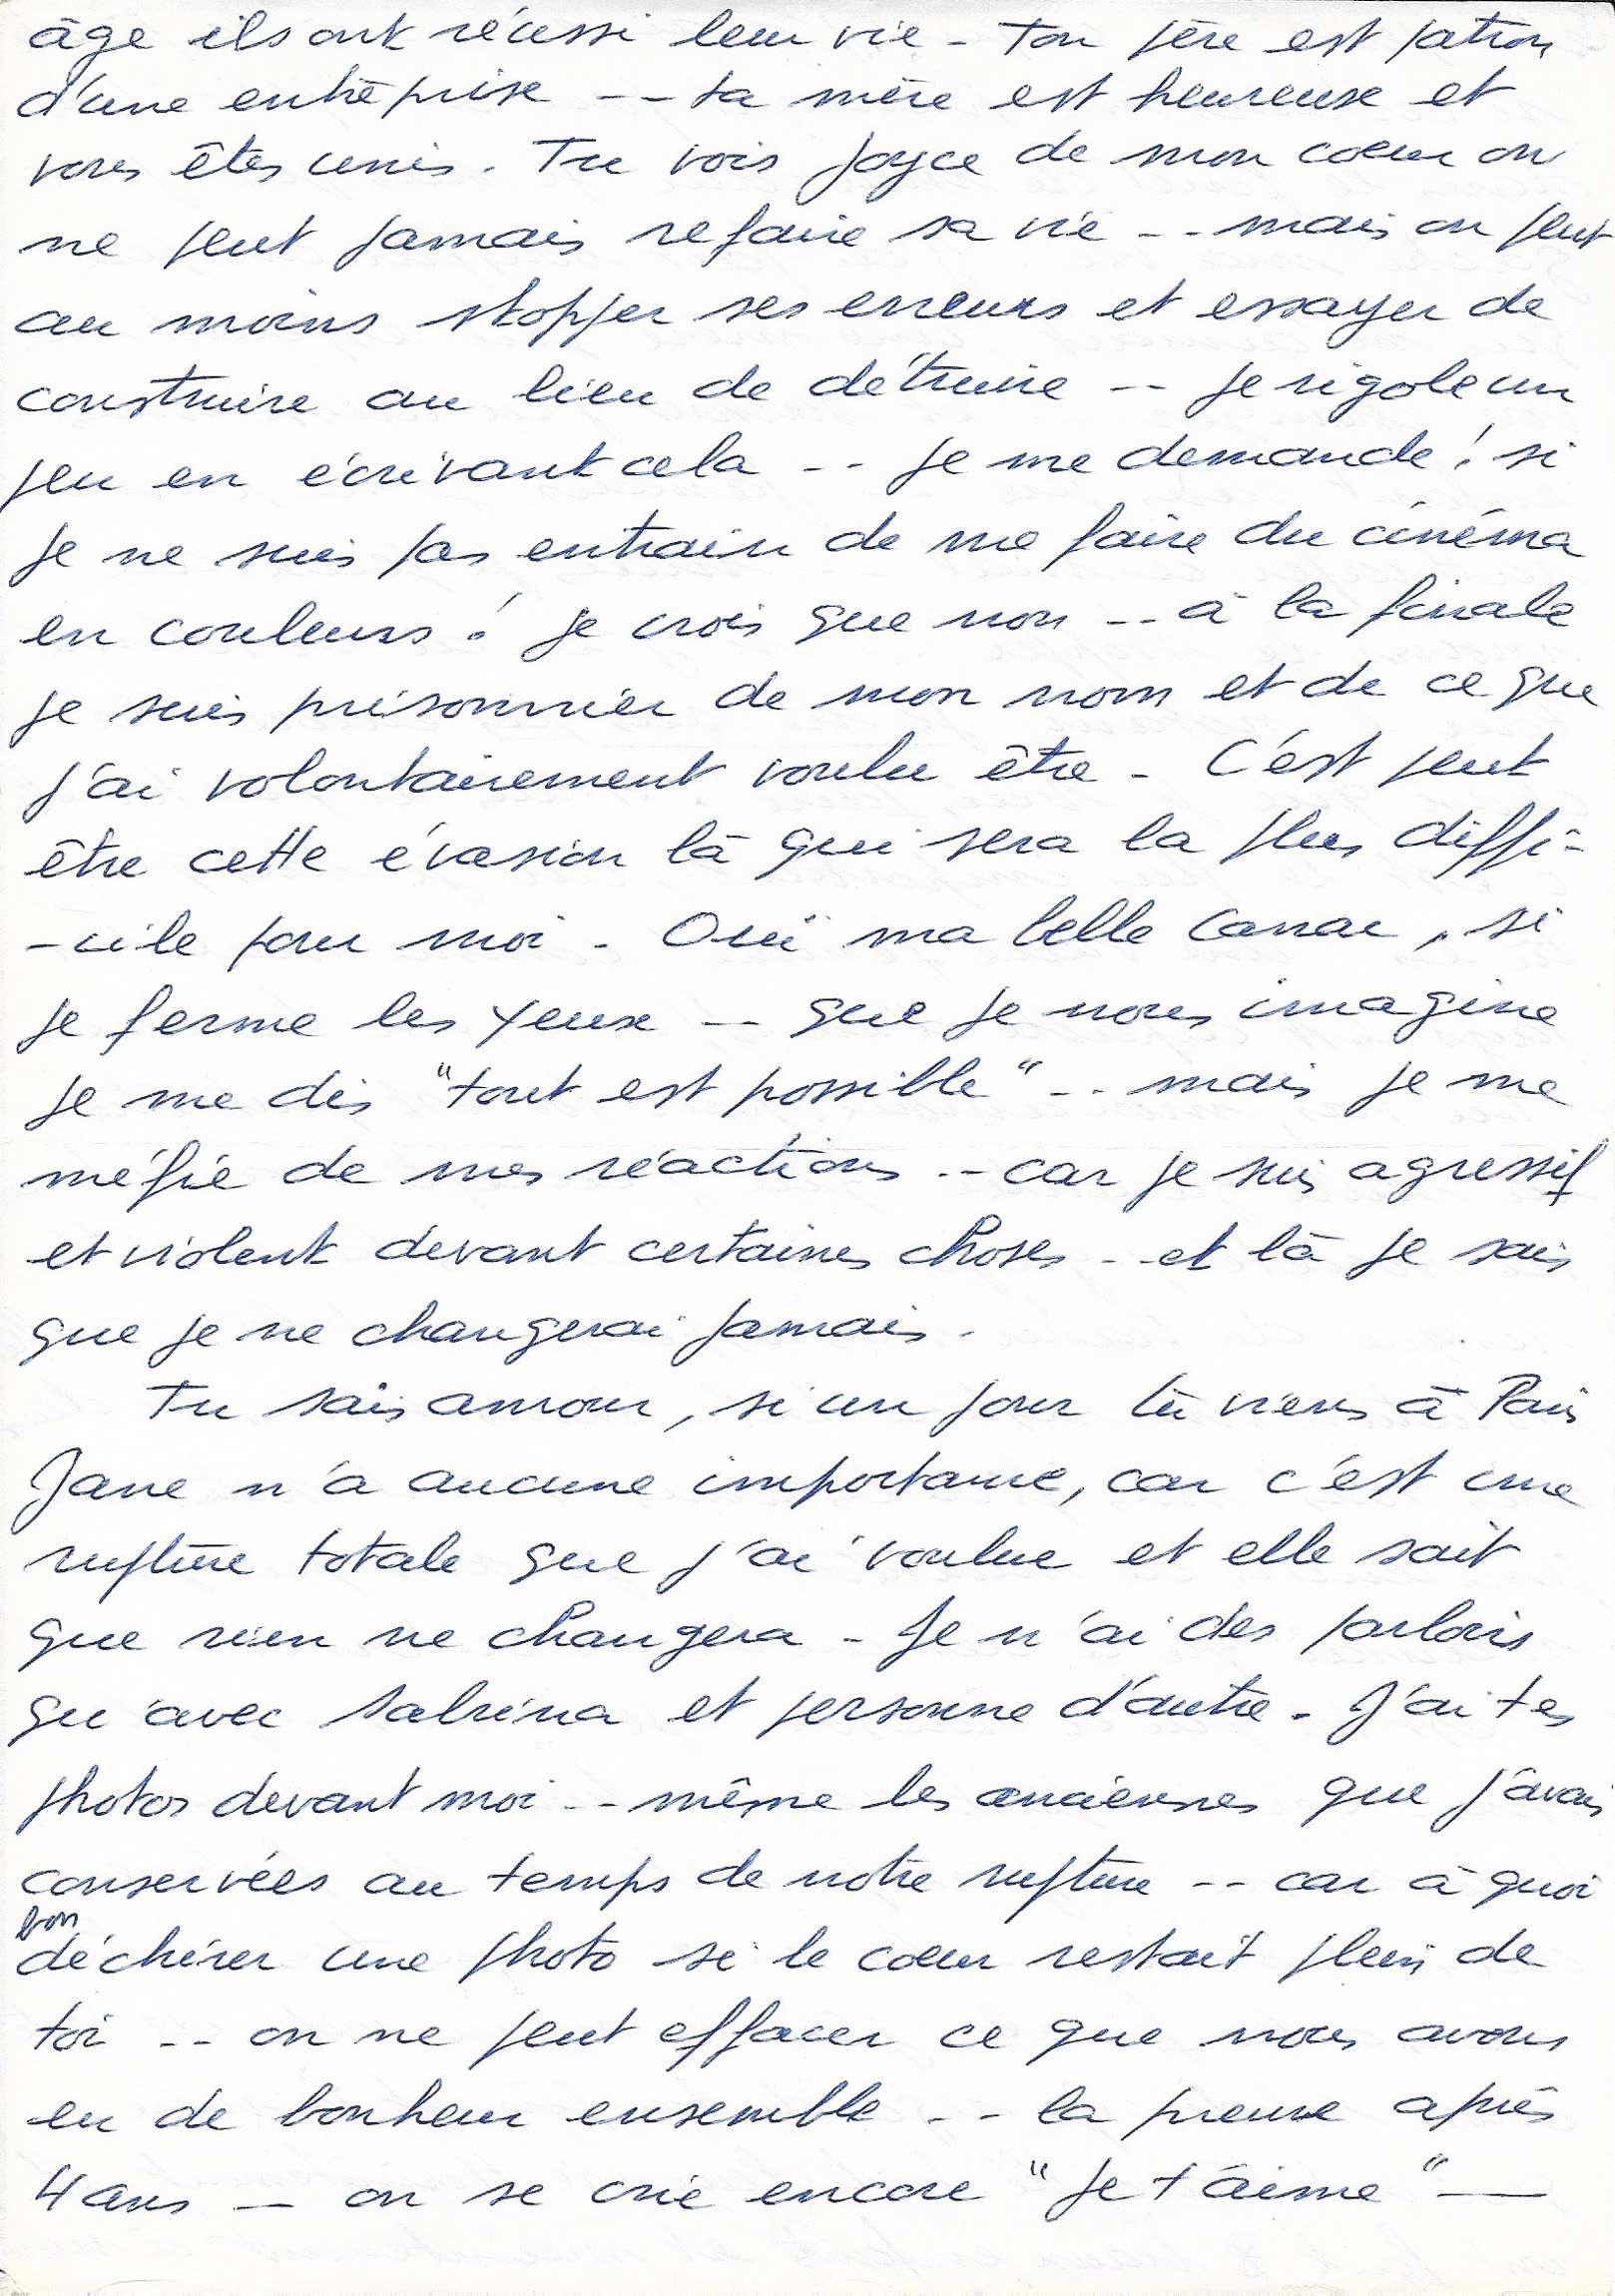 âge ils ont réussi leur vie - Ton père est patron
d'une entreprise -- ta mère est heureuse et
vous êtes unis. Tu vois Joyce de mon cœur on
ne peut jamais refaire sa vie -- mais on peut
au moins stopper ses erreurs et essayer de
construire au lieu de détruire -- je rigole un
peu en écrivant cela -- je me demande ! si
je ne suis pas entrain de me faire du cinéma
en couleurs ! je crois que non -- à la finale
je suis prisonnier de mon nom et de ce que
j'ai volontairement voulu être - C'est peut
être cette évasion là qui sera la plus diffi-
-cile pour moi - Oui ma belle Canac, si
je ferme les yeux -- que je nous imagine
je me dis "tout est possible" -- mais je me
méfie de mes réactions -- car je suis agressif
et violent devant certaines choses -- et là je sais
que je ne changerai jamais.
Tu sais amour, si un jour tu viens à Paris
Jane n'a aucune importance, car c'est une
rupture totale que j'ai voulue et elle sait
que rien ne changera - Je n'ai des parloirs
qu'avec Sabrina et personne d'autre - J'ai tes
photos devant moi -- même les anciennes que j'avais
conservées au temps de notre rupture -- car à quoi
bon
déchirer une photo si le cœur restait plein de
toi -- on ne peut effacer ce que nous avons
eu de bonheur ensemble -- la preuve après
4 ans -- on se crie encore "je t'aime" --